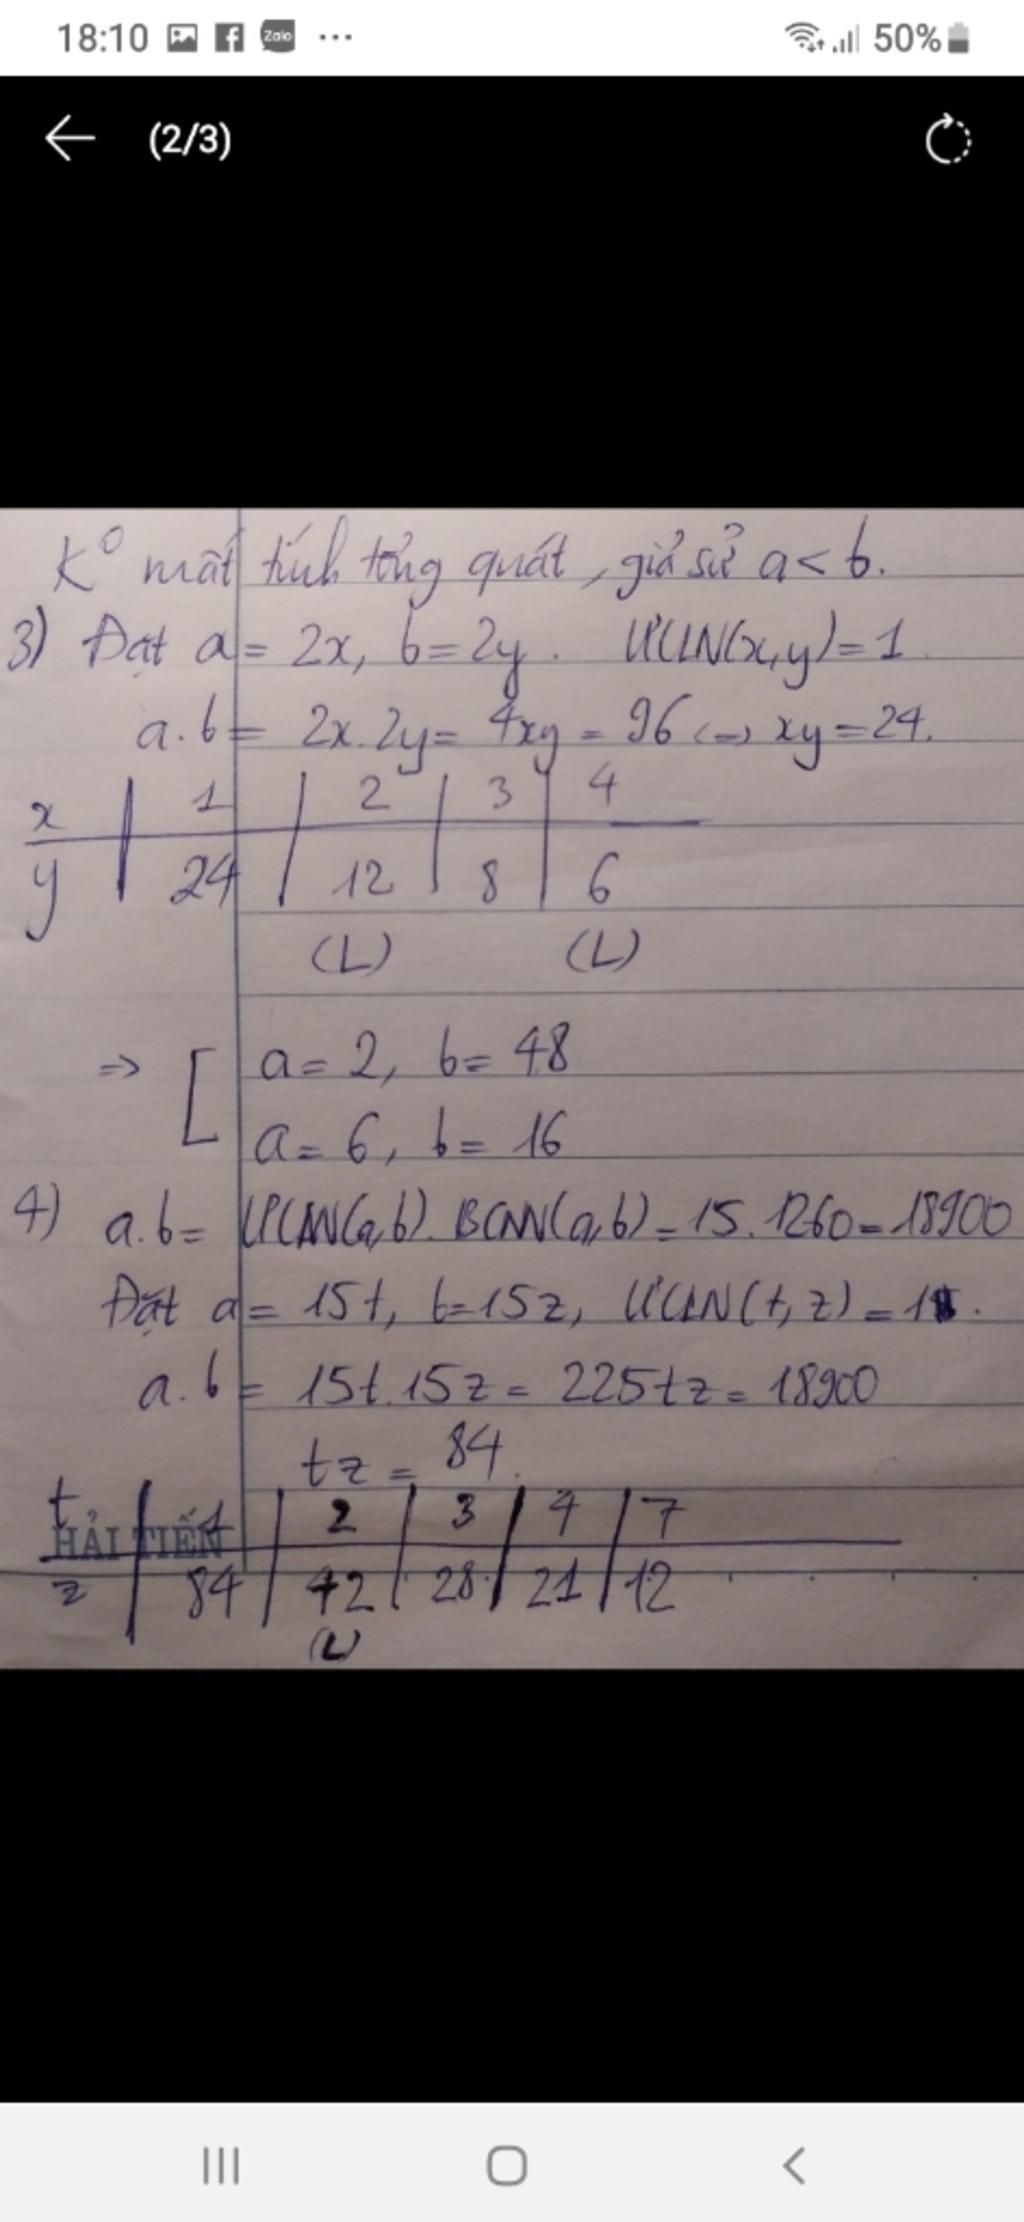 18:10 Zalo ... 50%
(2/3)
K° mất tính tổng quát, giả sử a < b.
3) Đặt a = 2x, b = 2y. ƯCLN(x,y) = 1.
a.b = 2x.2y = 4xy = 96 <=> xy = 24.
x | 1 | 2 | 3 | 4
y | 24 | 12 | 8 | 6
(L) (L)
=> [ a = 2, b = 48
a = 6, b = 16
4) a.b = ƯCLN(a,b). BCNN(a,b) = 15.1260 = 18900
Đặt a = 15t, b = 15z, ƯCLN(t, z) = 1.
a.b = 15t.15z = 225tz = 18900
tz = 84.
t | 1 | 2 | 3 | 4 | 7
HẢI TIẾN
z | 84 | 42 | 28 | 21 | 12
(L)